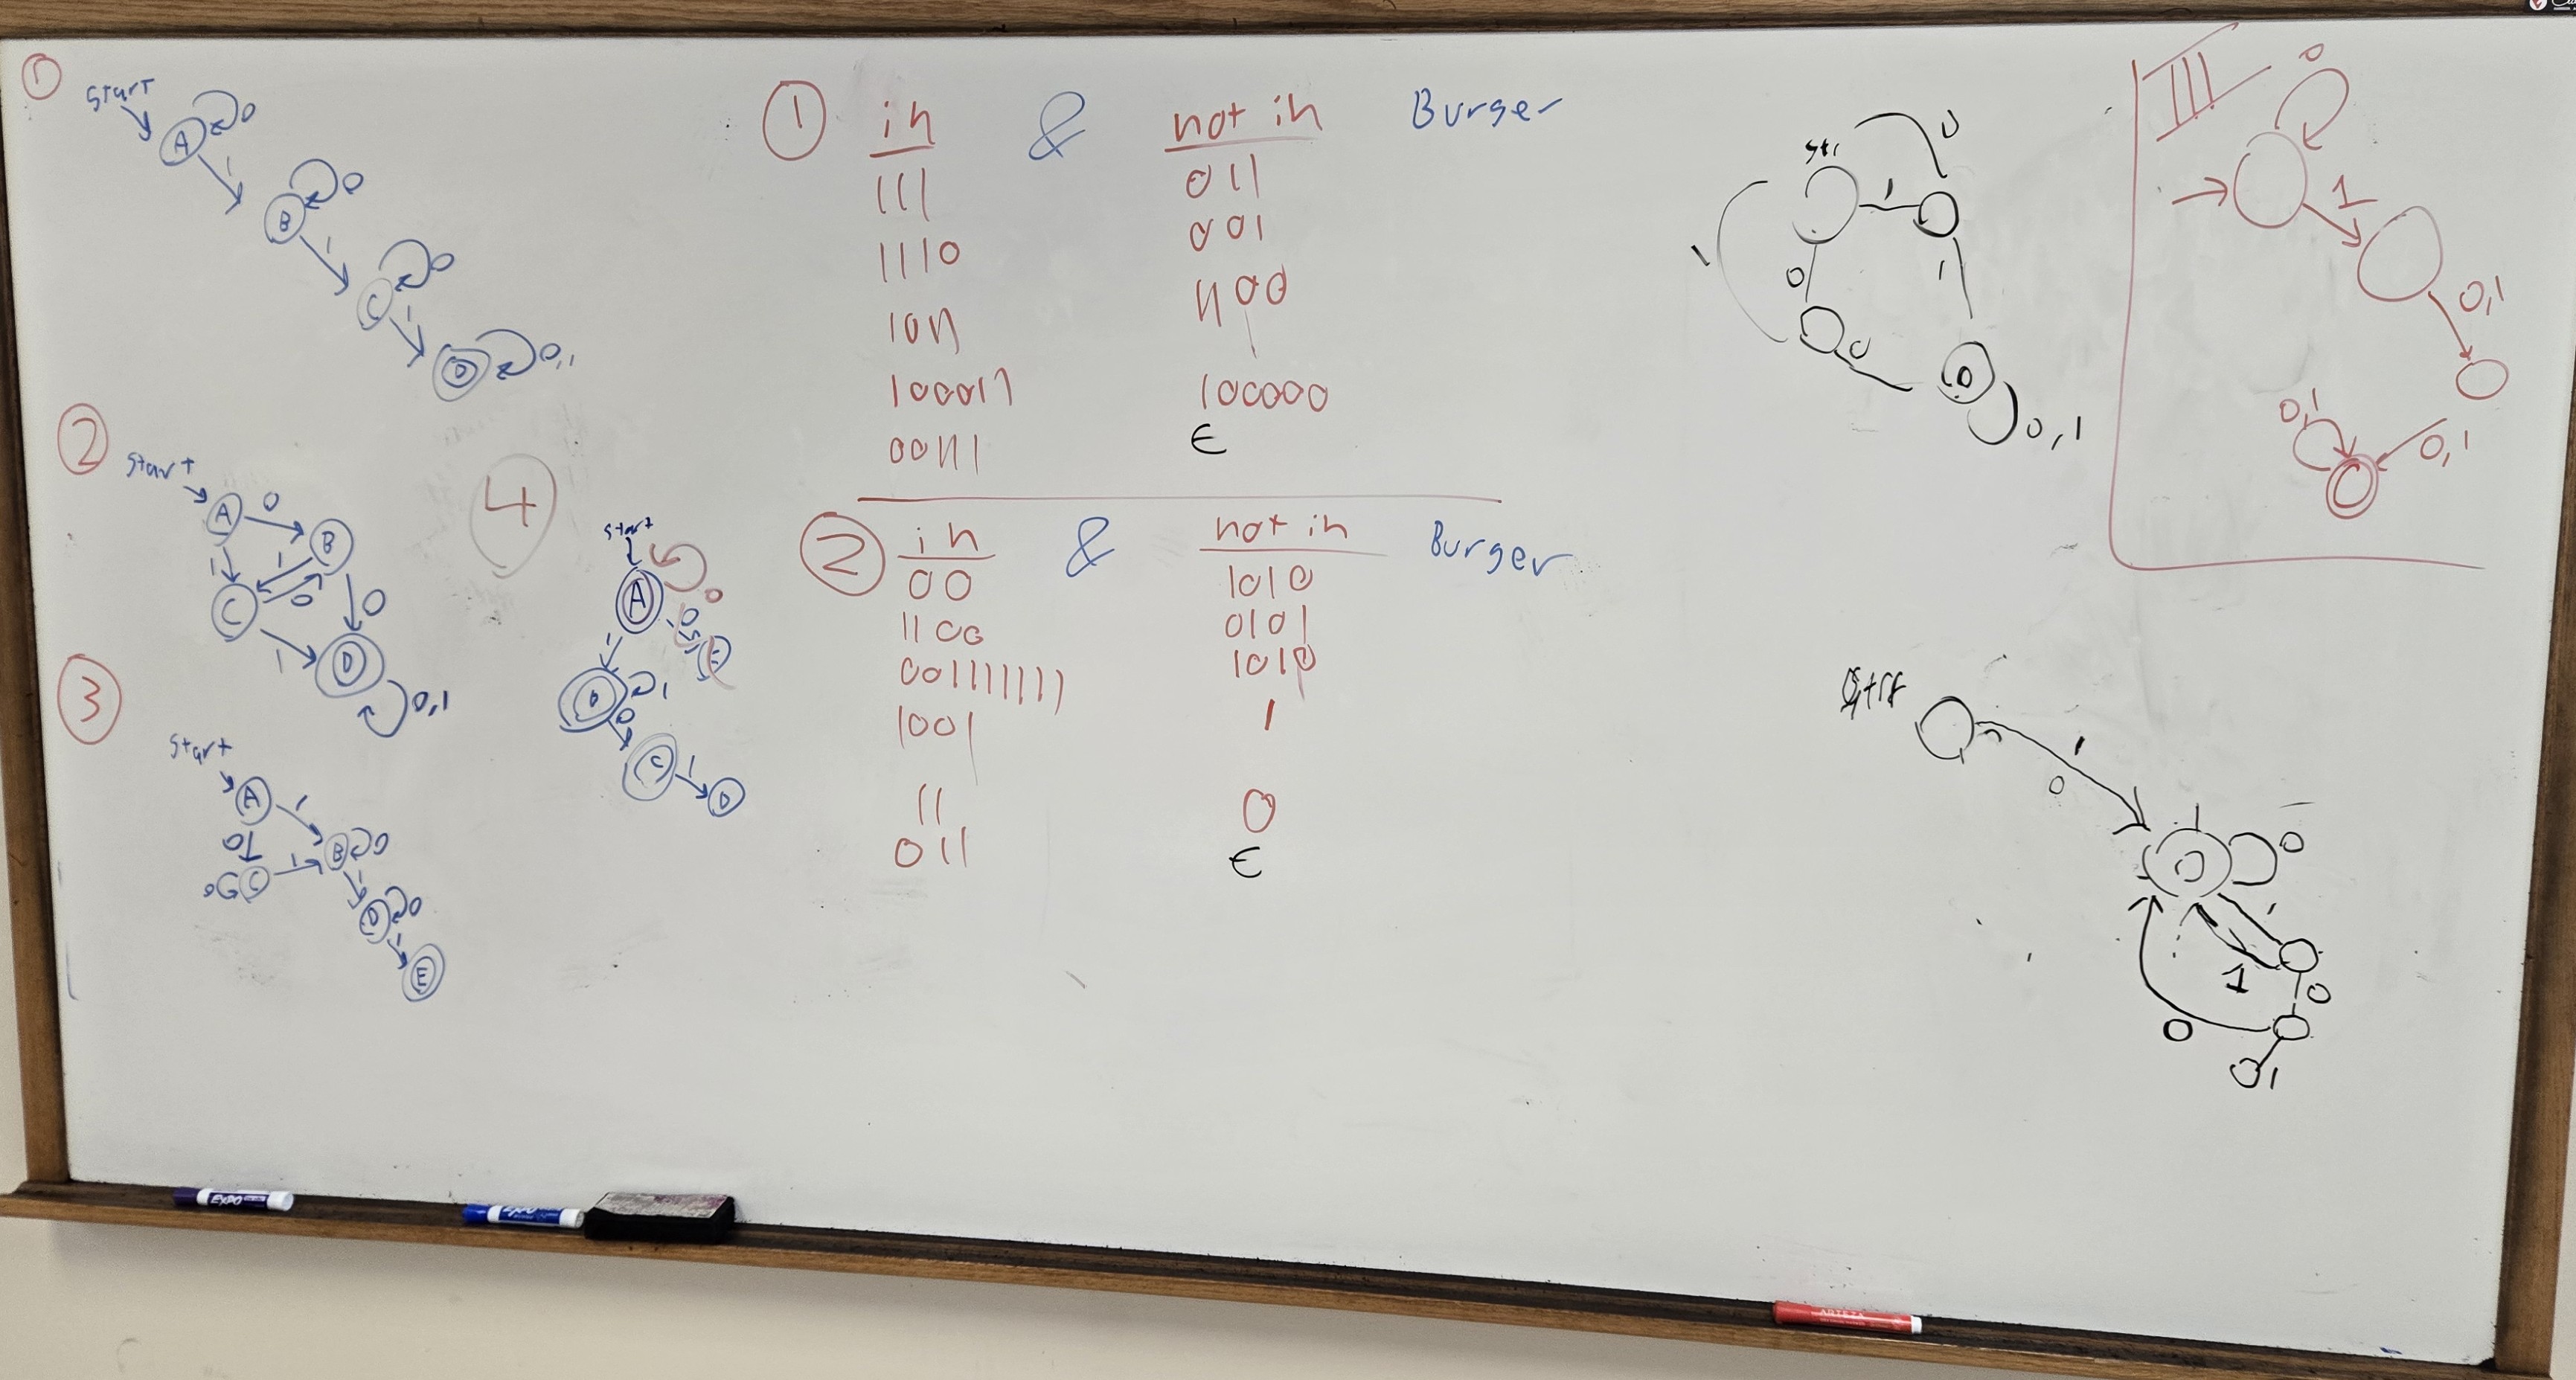 ①
Start
A
0
1
B
0
1
C
0
1
D
0,1
②
Start
A
0
B
1
1
0
0
C
1
D
0,1
③
Start
A
1
0
B
0
1
C
0
1
D
0
1
E
4
Start
A
0
0
1
E
B
1
0
C
1
D
① in & not in Burger
111 011
1110 001
1011 1100
100011 100000
00111 ϵ
② in & not in Burger
00 1010
1100 0101
0011111111 1010
1001 1
11 0
011 ϵ
0
1
1
0
1
0
0,1
III
0
1
0,1
0,1
0,1
1
0
0
1
1
0
0
1
EXPO
EXPO
ARTEZA